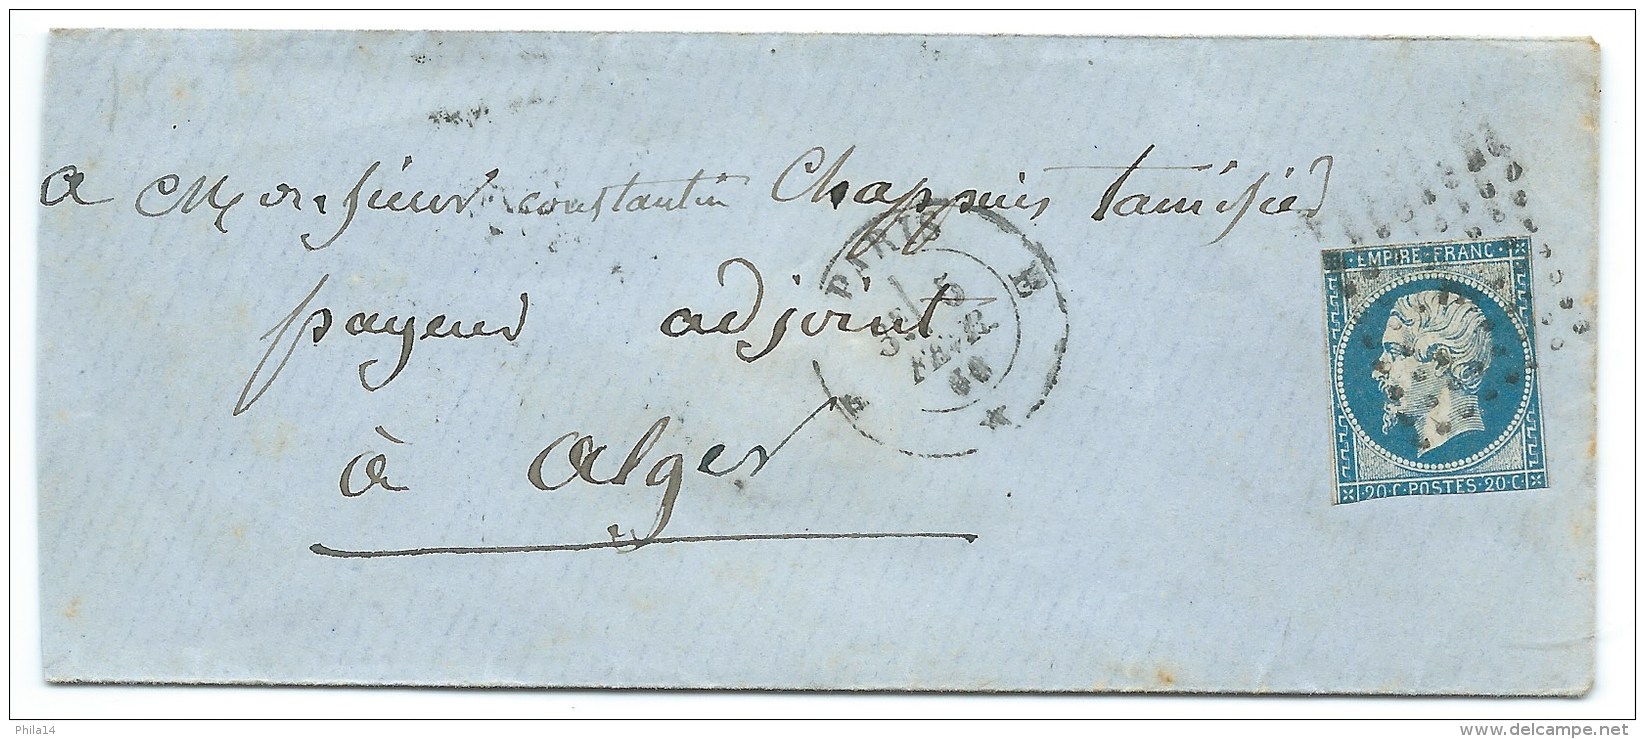 a Monsieur constantin Chappuis tamisier
payeur adjoint
à alger
PARIS E
5
FEVR.
60
EMPIRE·FRANC·
20·C·POSTES·20·C·
Phila14
www.delcampe.net